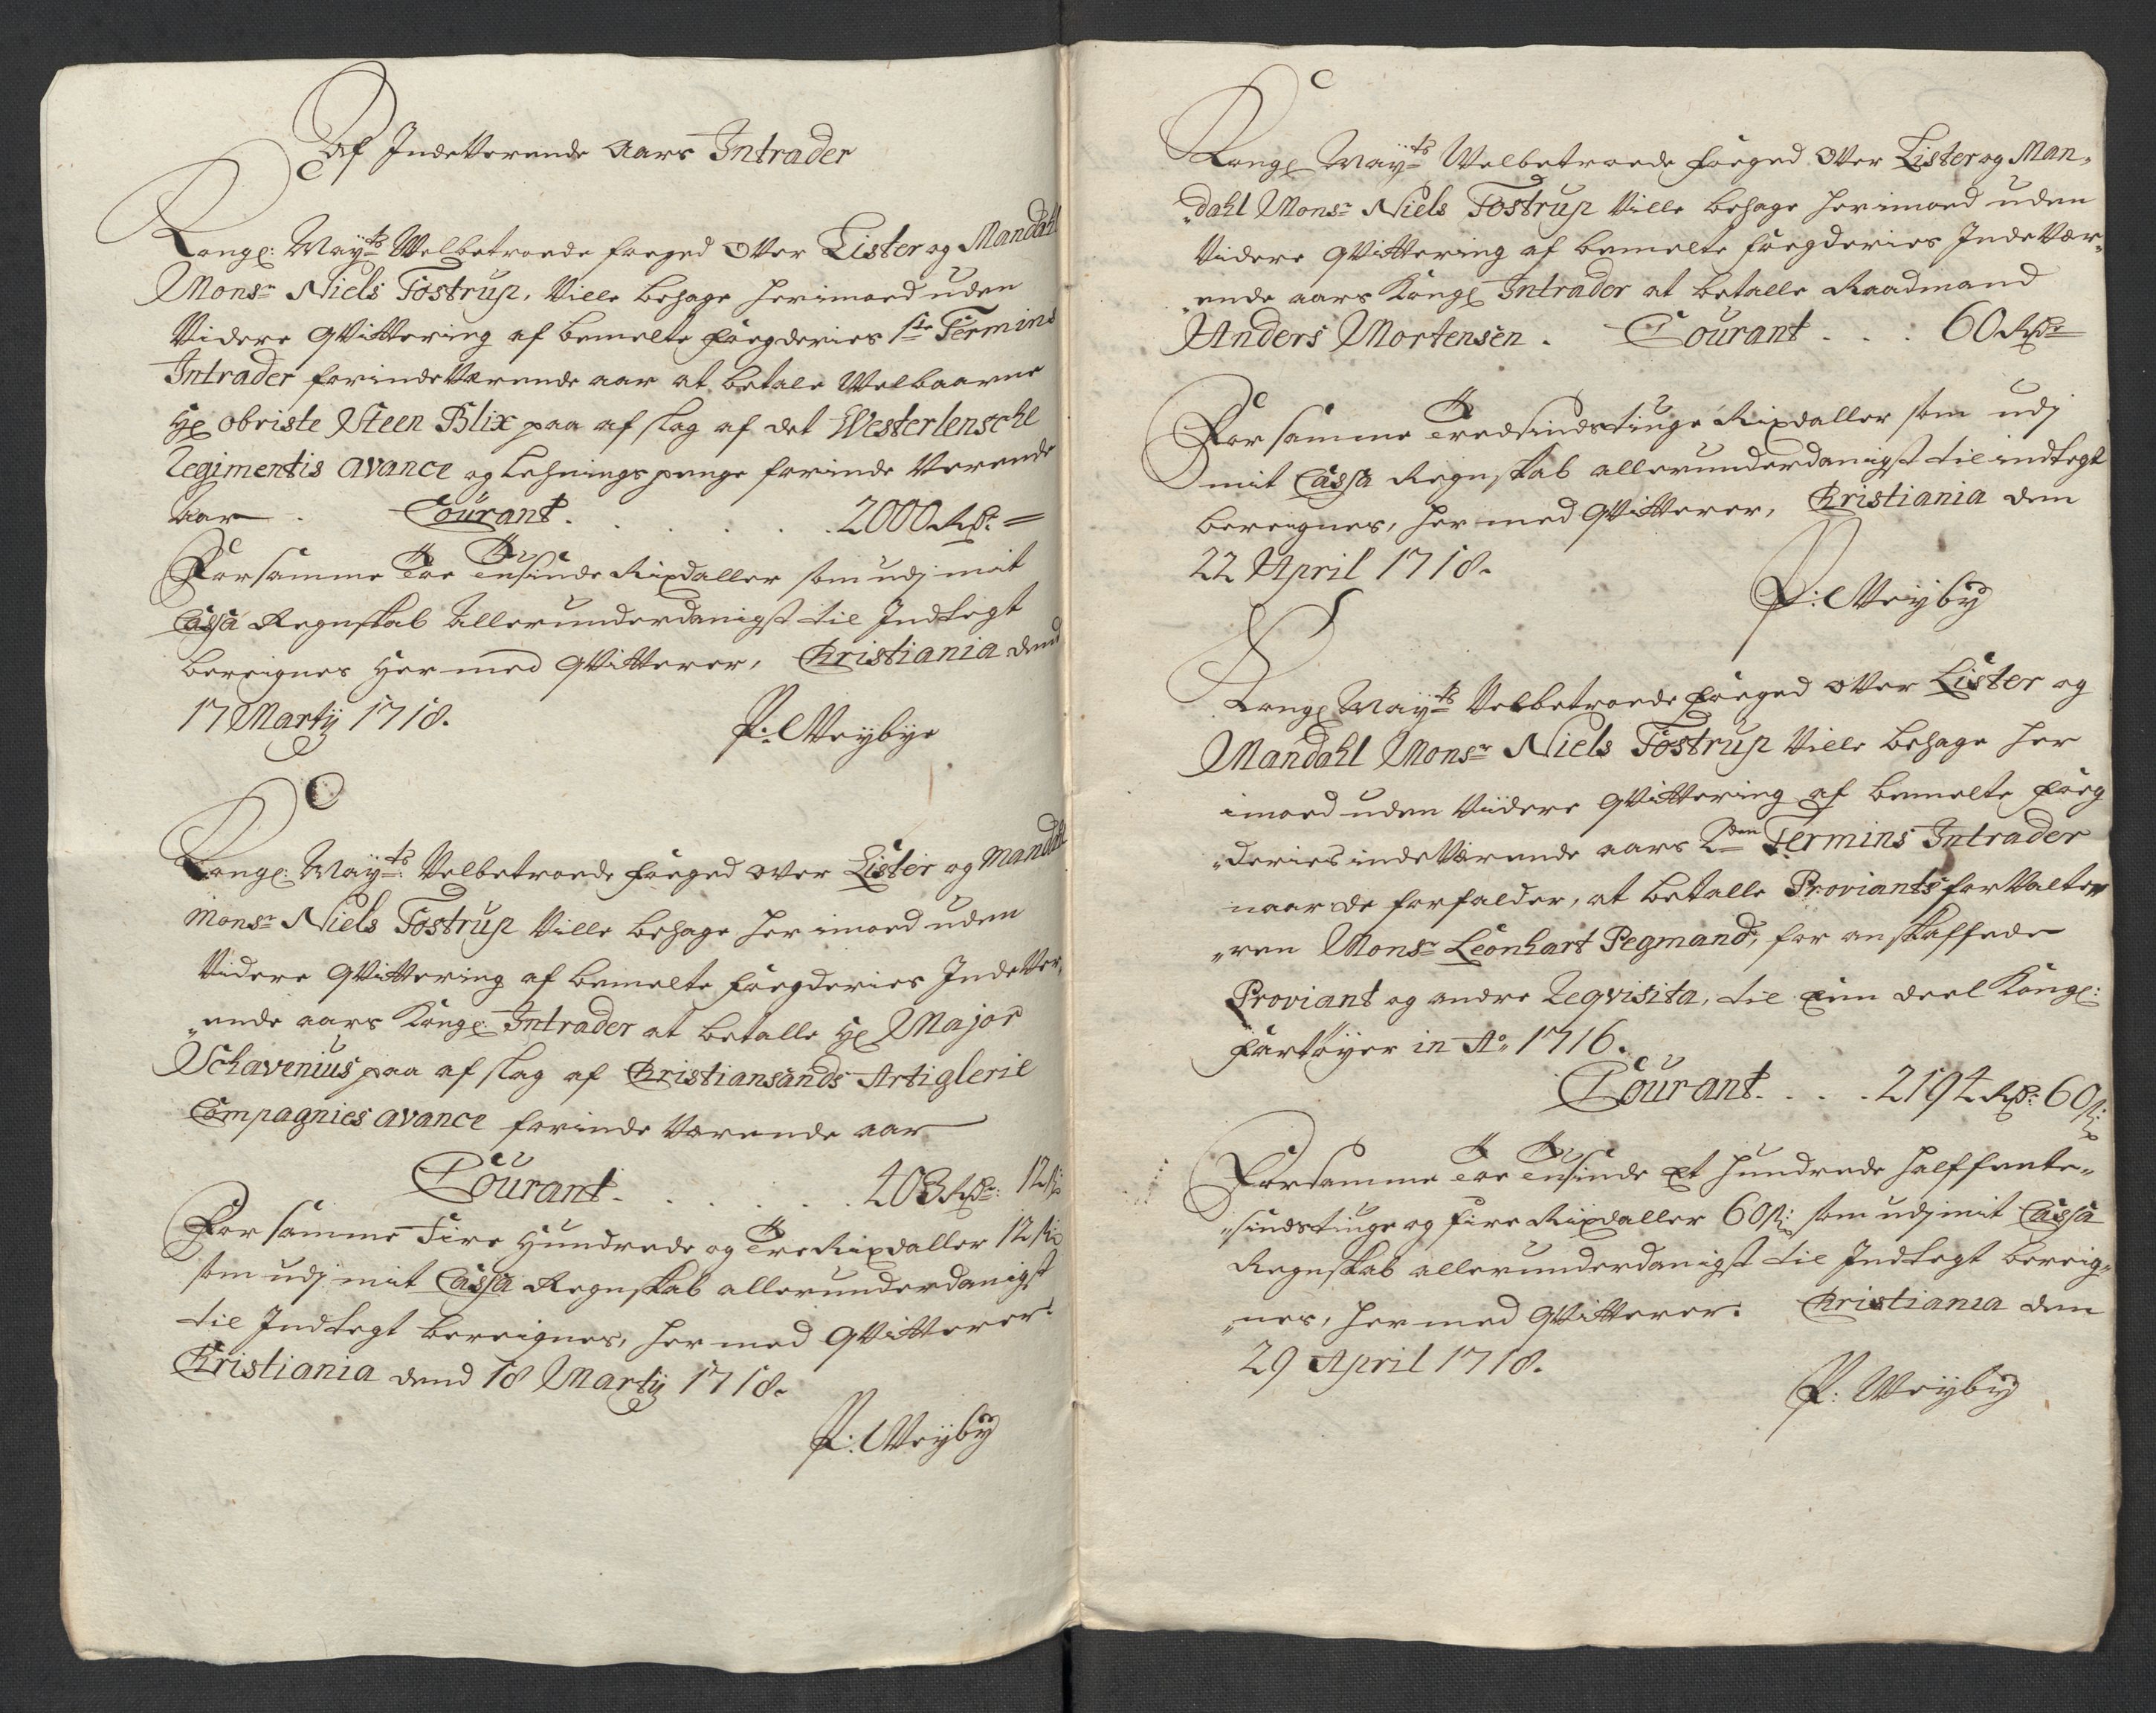 Af Indeverende Aars Intrader
Kongl: Mayts Welbetroede foeged Over Lister og Mandahl
Monsr Niels Tostrup, Ville behage herimoed uden
Videre qvittering af bemelte foegderies 1ste Termins
Intrader for indeværende aar at betale Welbaarne
Hr Obriste Steen Blix paa afslag af det Westerlensche
Regimentis avance og Lehningspenge for inde Verende
Aar. Courant. . . . . . 2000 Rdr. =
For samme Toe Tusinde Rixdaller som udj mit
Cassa Regnskab Allerunderdanigst til Indtegt
bereignes Hermed qvitterer, Christiania dend
17 Martij 1718.
P: Weybye
Kongl: Mayts: Velbetroede foeged over Lister og Mandahl
Monsr Niels Tostrup Ville behage her imoed uden
Videre qvittering af bemelte foegderies Indever„
„ende aars Kongl: Intrader at betalle Hr Major
Schavenius paa afslag af Christiansands Artiglerie
Compagnies avance for inde værende aar
Courant. . . . . . 403 Rdr: 12 s:
For samme Fire Hundrede og Tre Rixdaller 12 s:
som udj mit Cassa Regnskab allerunderdanigst
til Indtegt bereignes, her med qvitterer.
Christiania dend 18 Martij 1718.
P: Weyby
Kongl Mayts Welbetroede foeged Over Lister og Man„
„dahl Monsr Niels Tostrup Ville behage herimoed uden
Videre qvittering af bemelte foegderies Indevær„
„ende aars Kongl Intrader at betalle Raadmand
Anders Mortensen. Courant . . . 60 Rdr
For samme Tredsindstiuge Rixdaller som udj
mit Cassa Regnskab allerunderdanigst til indtegt
bereignes, her med qvitterer, Christiania den
22 April 1718.
P: Weyby
Kongl Mayts Velbetroede foeged over Lister og
Mandahl Monsr Niels Tostrup Ville behage her
imoed uden Videre qvittering af bemelte foeg
„deries indeværende aars 2den Termins Intrader
naar de forfalder, at betalle Proviants forvalte„
„ren Monsr Leonhart Pegmand, for anskaffede
Proviant og andre Reqvisita, til een deel Kongl:
fartøyer in Ao 1716.
Courant. . . . 2194 Rdr: 60 s:
For samme Toe Tusinde Et hundrede halffemte„
„sindstiuge og fire Rixdaller 60 s: som udj mit Cassa
Regnskab allerunderdanigst til Indtegt bereig„
„nes, her med qvitterer. Christiania den
29 April 1718.
P: Weyby